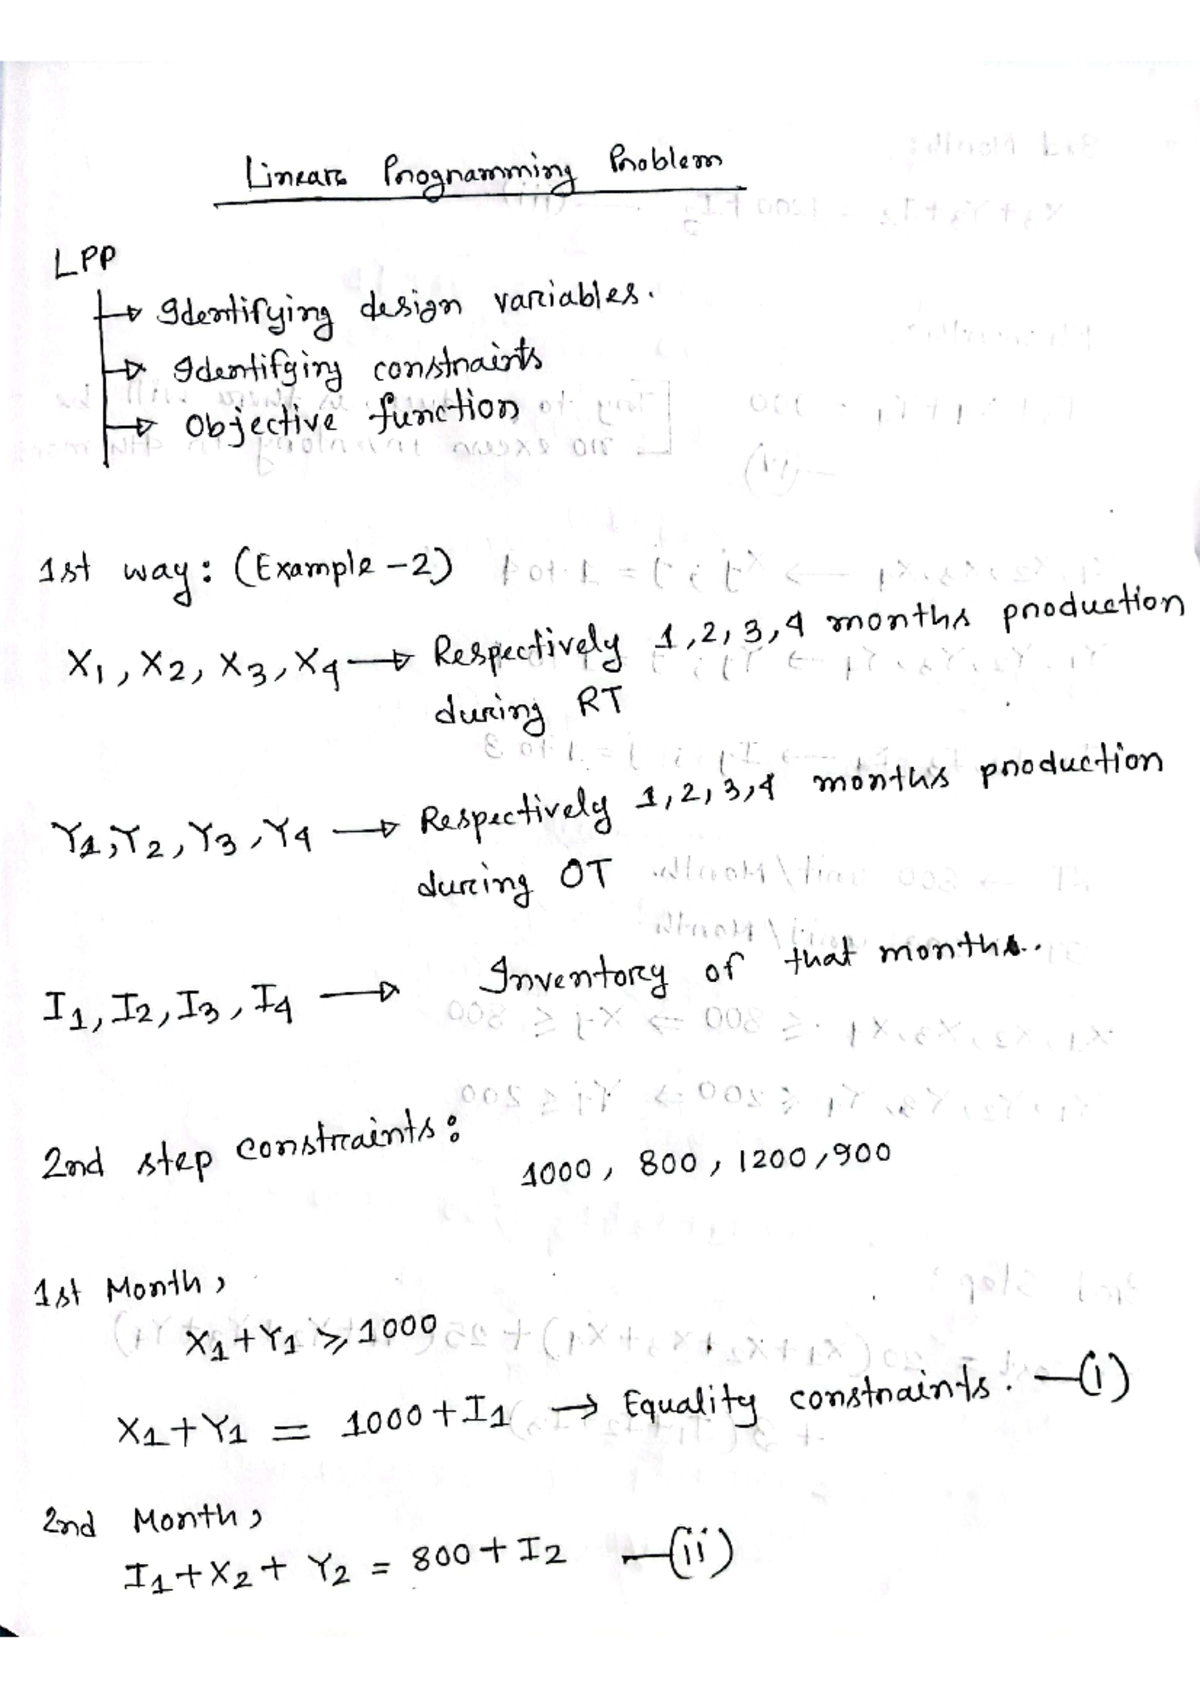 Linear Programming Problem
LPP
→ Identifying design variables.
→ Identifying constraints
→ Objective function
1st way: (Example-2)
X1, X2, X3, X4 → Respectively 1,2,3,4 months production
during RT
Y1, Y2, Y3, Y4 → Respectively 1,2,3,4 months production
during OT
I1, I2, I3, I4 → Inventory of that months.
2nd step constraints:
1000, 800, 1200, 900
1st Month,
X1+Y1 ⩾ 1000
X1+Y1 = 1000+I1 → Equality constraints. —(i)
2nd Month,
I1+X2+Y2 = 800+I2 —(ii)